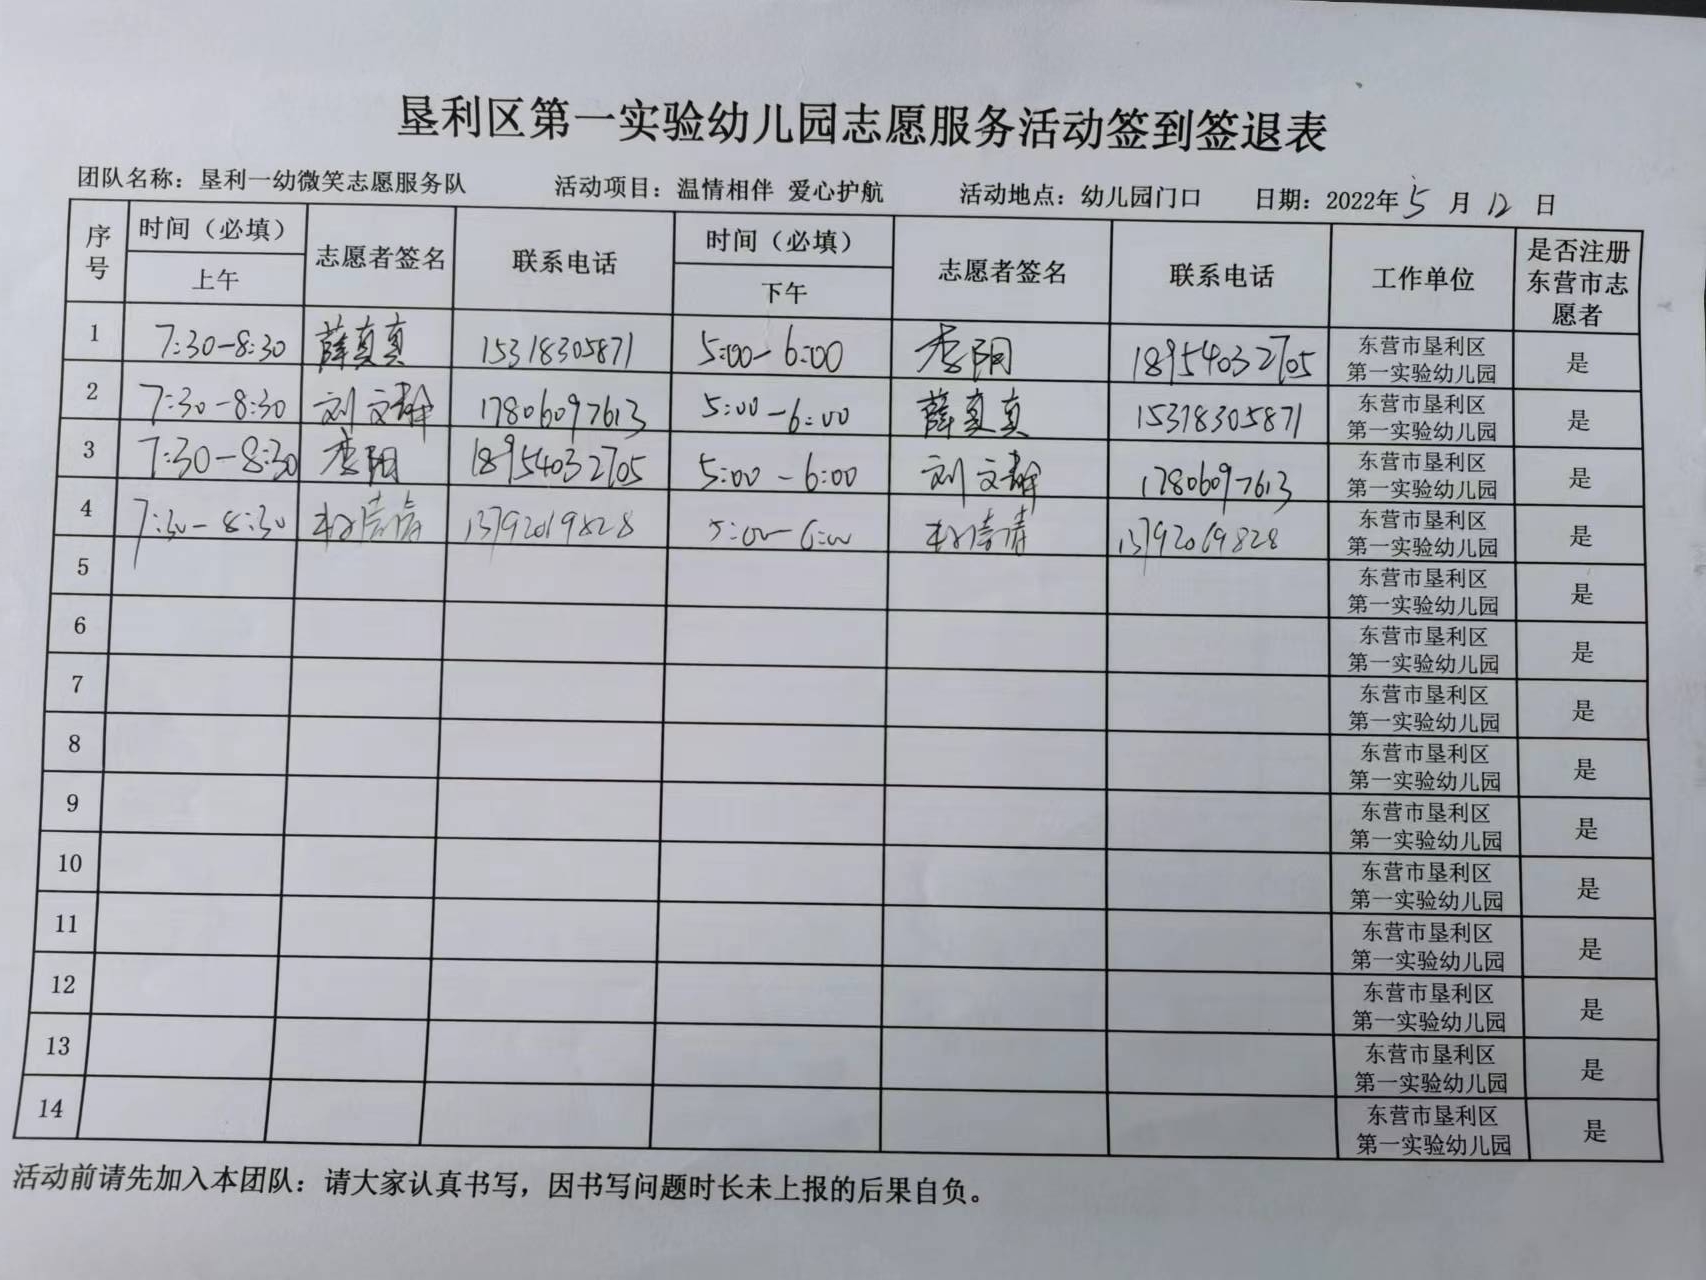 垦利区第一实验幼儿园志愿服务活动签到签退表
团队名称：垦利一幼微笑志愿服务队 活动项目：温情相伴 爱心护航 活动地点：幼儿园门口 日期：2022年5月12日
序号 时间（必填） 上午 志愿者签名 联系电话 时间（必填） 下午 志愿者签名 联系电话 工作单位 是否注册东营市志愿者
1 7:30-8:30 薛真真 15318305871 5:00-6:00 李阳 18954032705 东营市垦利区第一实验幼儿园 是
2 7:30-8:30 刘文静 17806097613 5:00-6:00 薛真真 15318305871 东营市垦利区第一实验幼儿园 是
3 7:30-8:30 李阳 18954032705 5:00-6:00 刘文静 17806097613 东营市垦利区第一实验幼儿园 是
4 7:30-8:30 13792069828 5:00-6:00 13792069828 东营市垦利区第一实验幼儿园 是
5 东营市垦利区第一实验幼儿园 是
6 东营市垦利区第一实验幼儿园 是
7 东营市垦利区第一实验幼儿园 是
8 东营市垦利区第一实验幼儿园 是
9 东营市垦利区第一实验幼儿园 是
10 东营市垦利区第一实验幼儿园 是
11 东营市垦利区第一实验幼儿园 是
12 东营市垦利区第一实验幼儿园 是
13 东营市垦利区第一实验幼儿园 是
14 东营市垦利区第一实验幼儿园 是
活动前请先加入本团队：请大家认真书写，因书写问题时长未上报的后果自负。